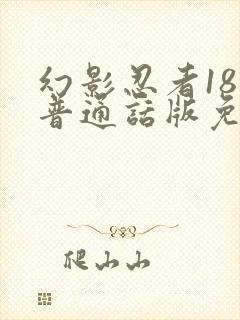 幻影忍者18
普通話版免
爬山山